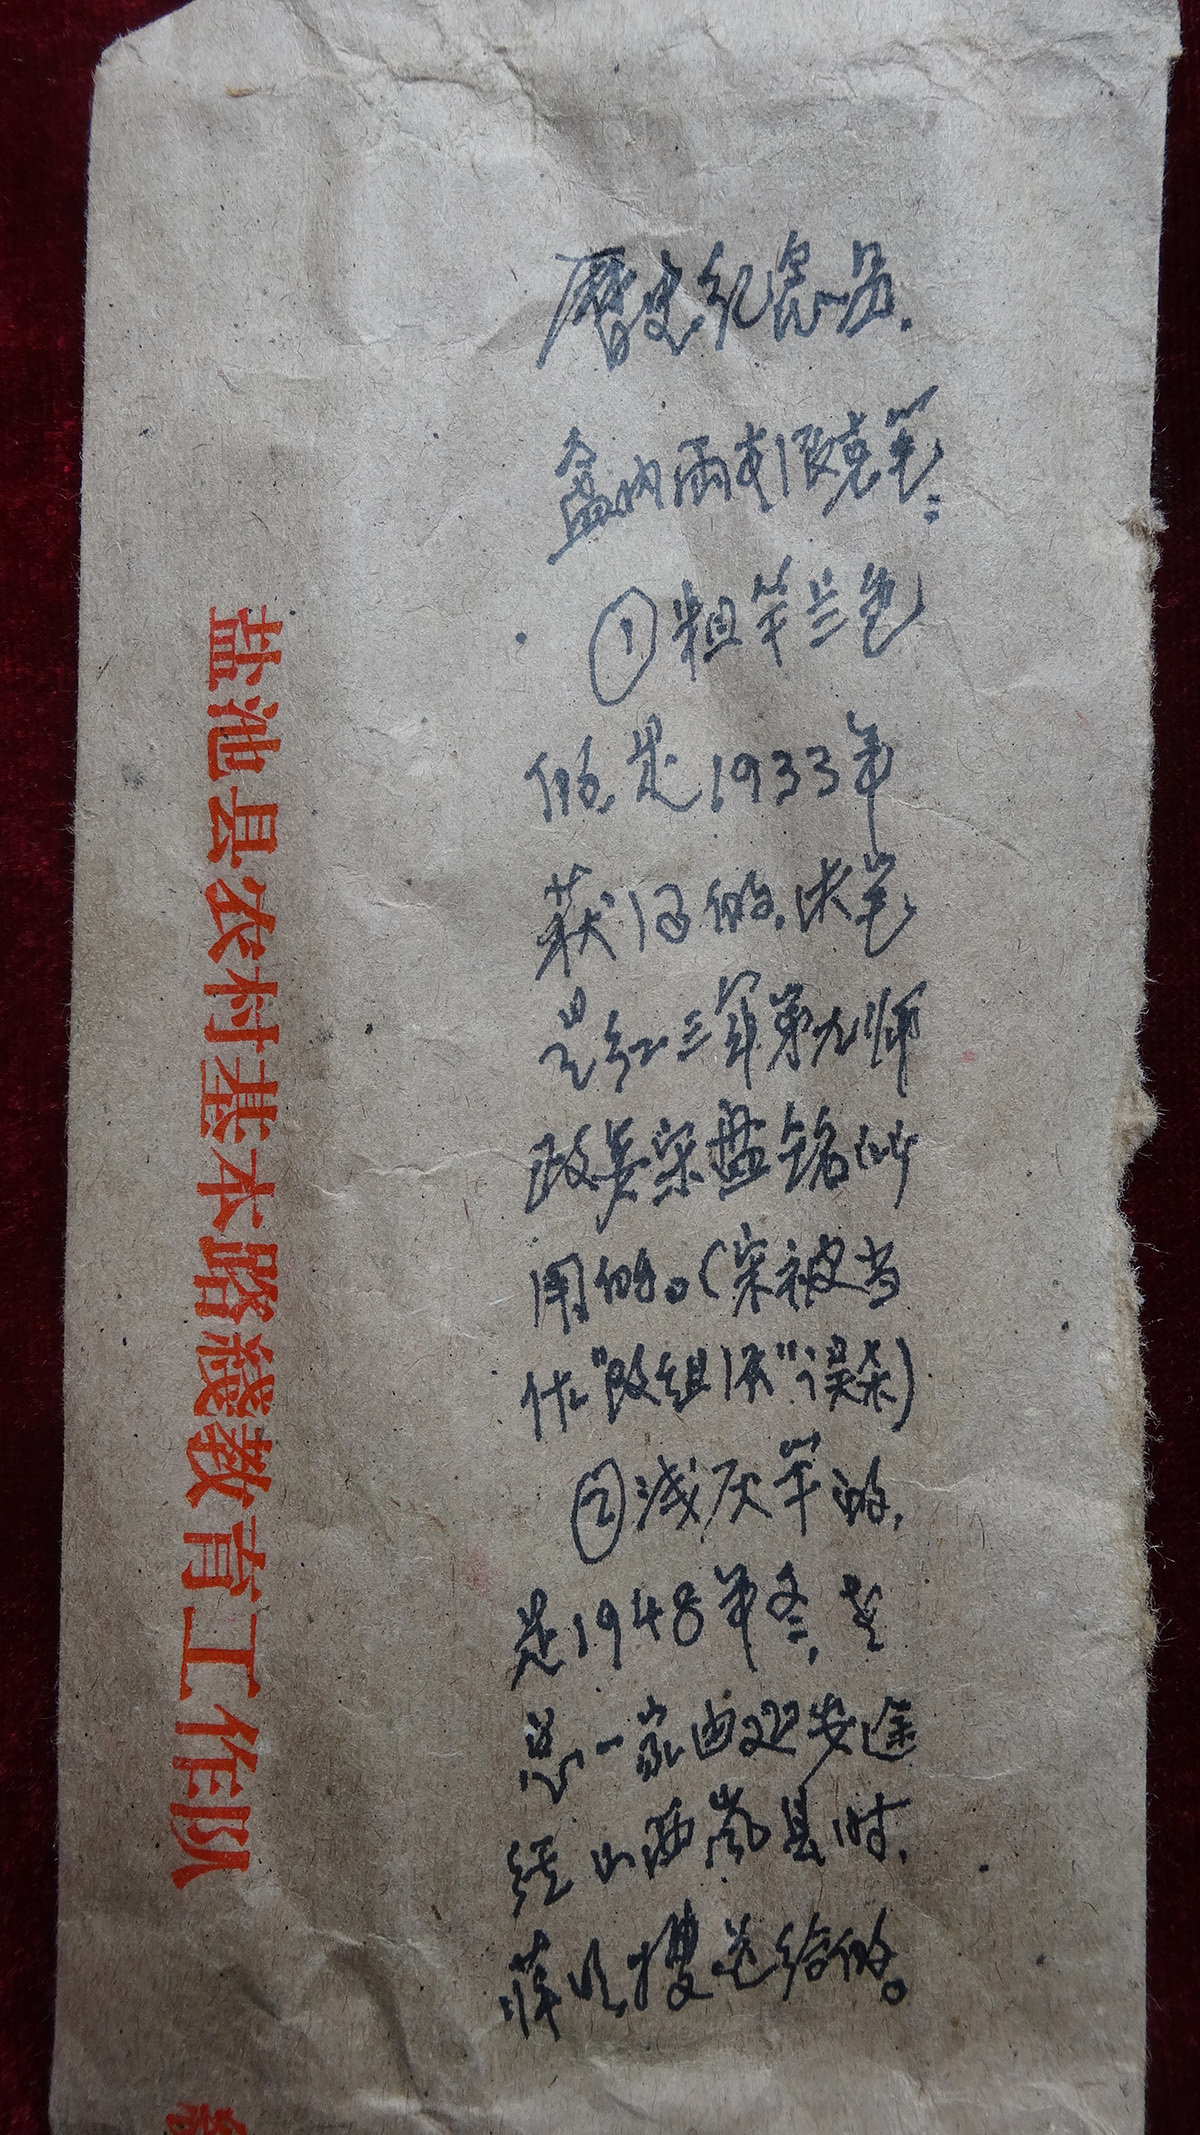 歷史紀念品.
盒内兩支派克笔:
①粗竿兰色
的,是1933年
获得的,决笔
是红三军第九师
政委宋盘铭所
用的。(宋被当
作"改组派"误杀)
②浅灰竿的,
是1948年冬,老
总一家由延安途
经山西岚县时,
薛明 送给的。
盐池县农村基本路綫教育工作队